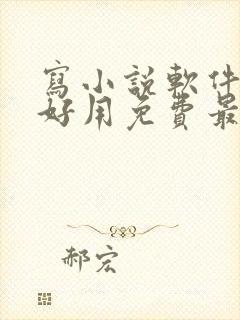 寫小說軟件
好用免費最
郝宏